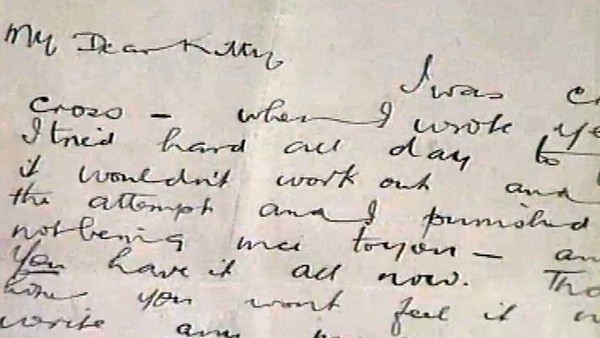 My Dear Kitty
I was
cross - when I wrote
I tried hard all day to
it wouldn't work out and
the attempt and I punished
not being nice to you -
You have it all now.
hope you wont feel it
write any